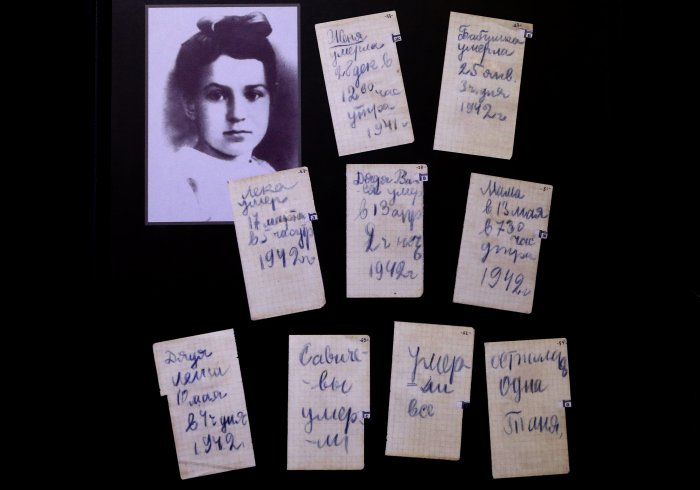 Женя
умерла
28 дек в
12 00 час
утра
1941 г
Бабушка
умерла
25 янв.
3 ч дня
1942 г.
Лека
умер
17 марта
в 5 час утр
1942 г
Дядя Ва
ся умер
в 13 апр
2 ч ноч
1942 г
Мама
в 13 мая
в 7 30
час
утра
1942 г
Дядя
Леша
10 мая
в 4 ч дня
1942 г
Савиче-
-вы
умер-
-ли
Умер-
-ли
все
осталась
одна
Таня.